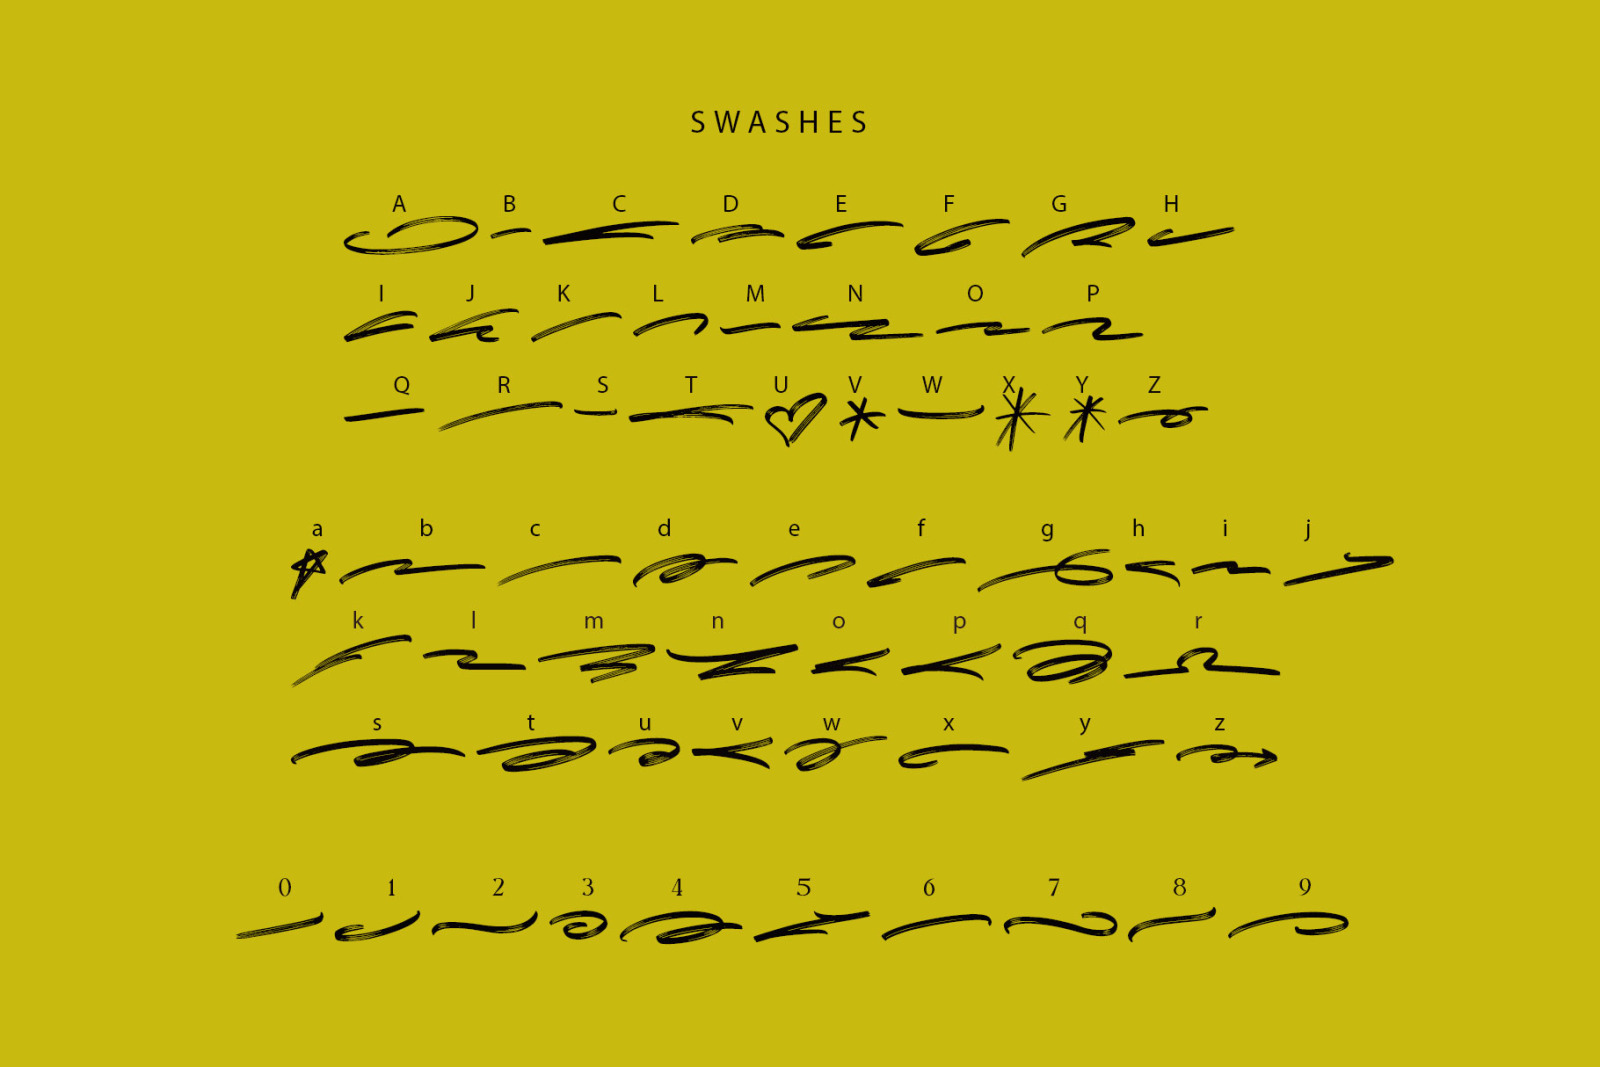 SWASHES
A B C D E F G H
I J K L M N O P
Q R S T U V W X Y Z
a b c d e f g h i j
k l m n o p q r
s t u v w x y z
0 1 2 3 4 5 6 7 8 9